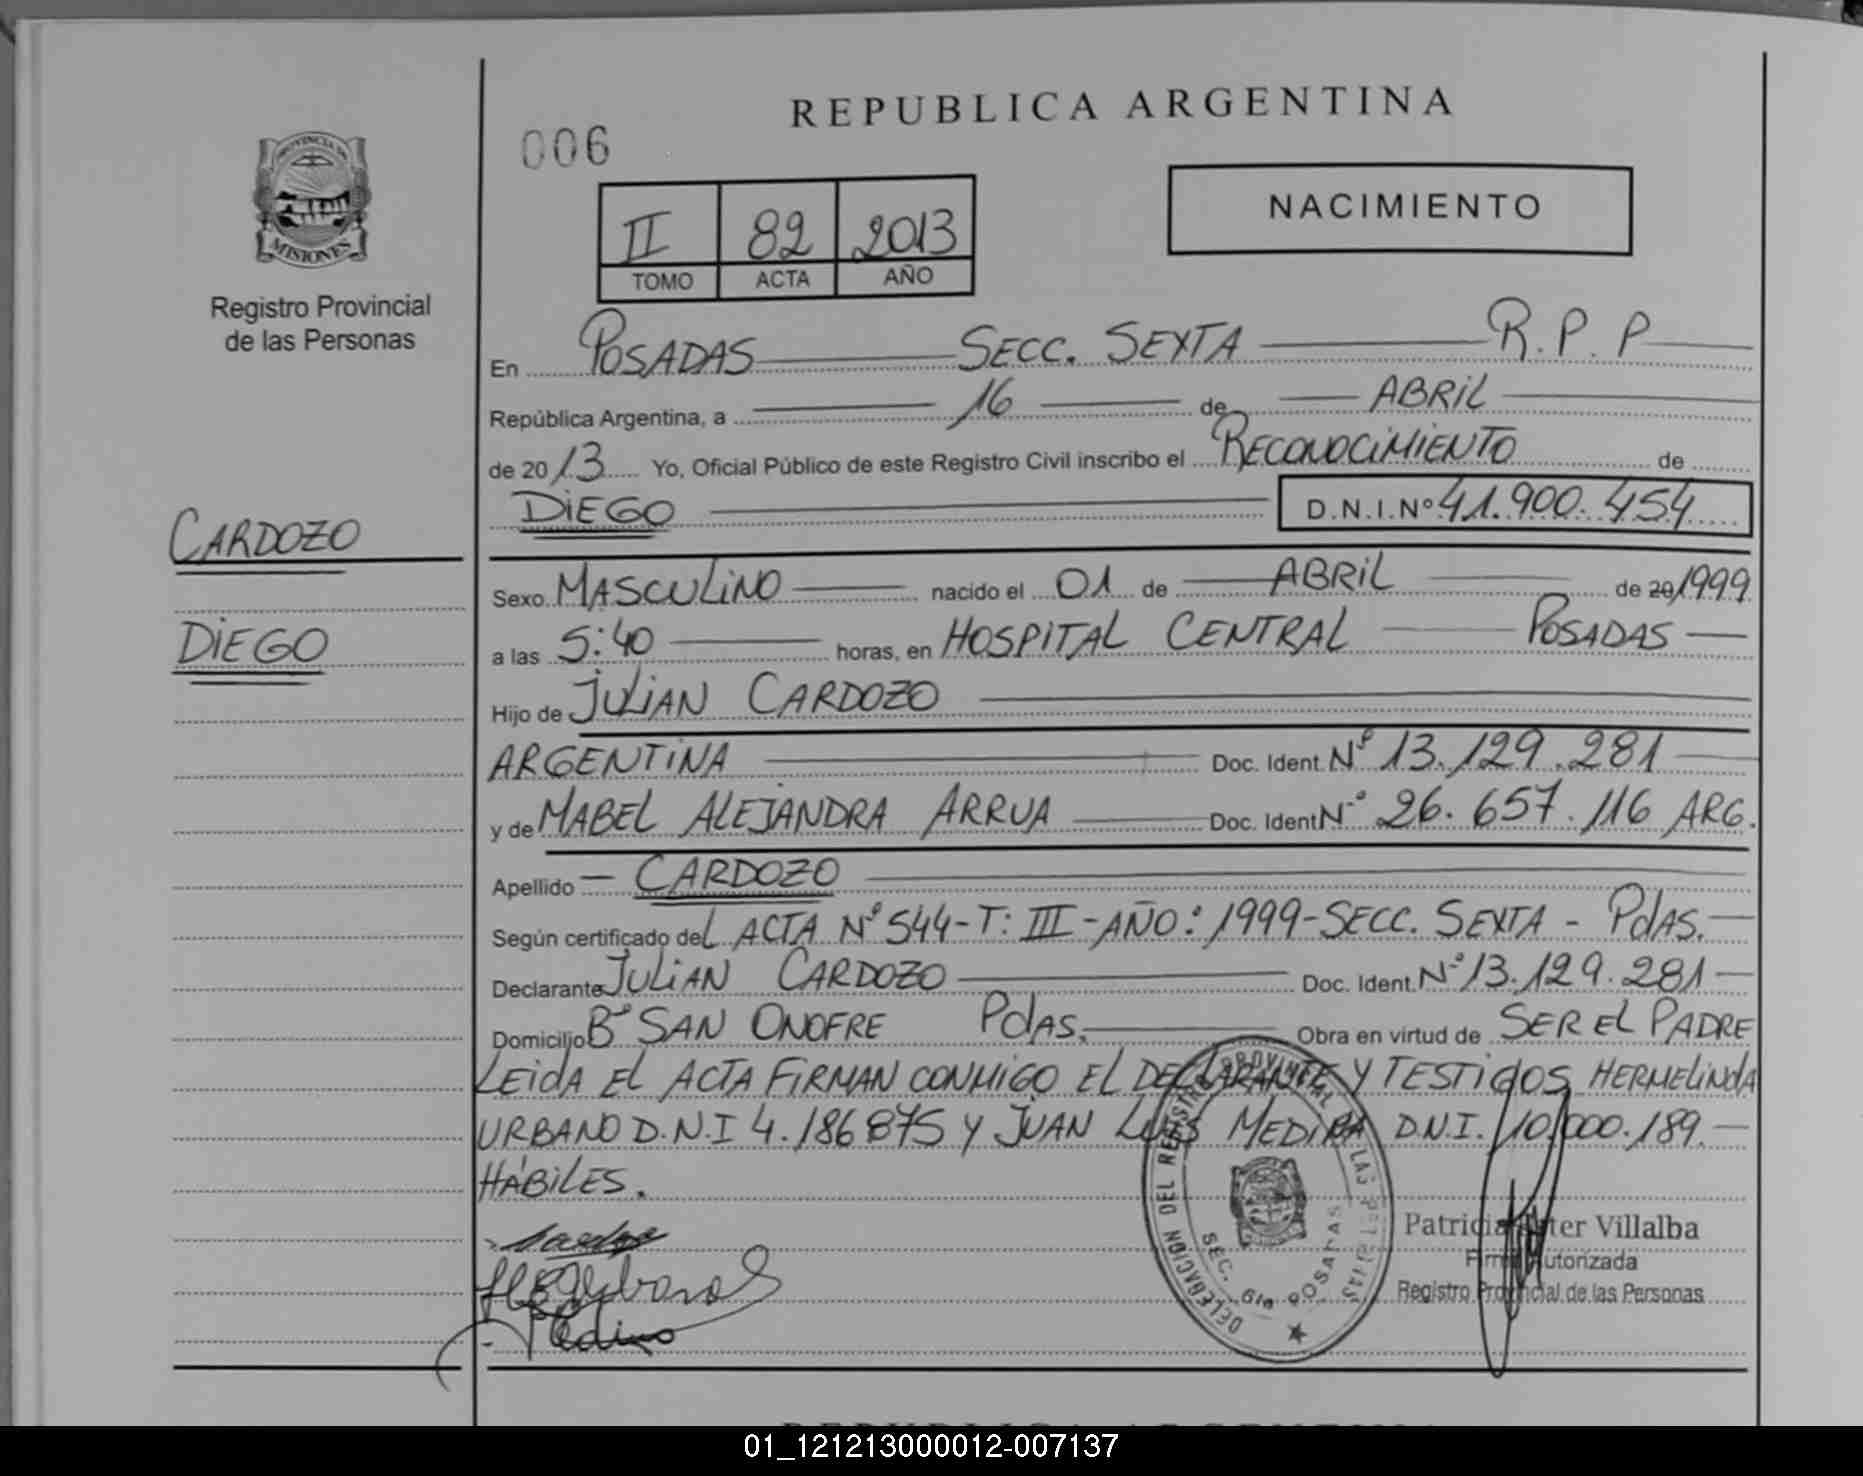 REPUBLICA ARGENTINA
006
PROVINCIA DE
MISIONES
Registro Provincial
de las Personas
II 82 2013
TOMO ACTA AÑO
NACIMIENTO
En POSADAS SECC. SEXTA R.P.P
República Argentina, a 16 de ABRIL
de 2013 Yo, Oficial Público de este Registro Civil inscribo el RECONOCIMIENTO de
DIEGO D.N.I.Nº 41.900.454
CARDOZO
DIEGO
Sexo MASCULINO nacido el 01 de ABRIL de 20 1999
a las 5:40 horas, en HOSPITAL CENTRAL POSADAS
Hijo de JULIAN CARDOZO
ARGENTINA Doc. Ident. Nº 13.129.281
y de MABEL ALEJANDRA ARRUA Doc. Ident Nº 26.657.116 ARG.
Apellido CARDOZO
Según certificado del ACTA Nº 544-T: III-AÑO: 1999-SECC. SEXTA - PdAS.
Declarante JULIAN CARDOZO Doc. Ident. Nº 13.129.281
Domicilio Bº SAN ONOFRE PdAS. Obra en virtud de SER EL PADRE
LEIDA EL ACTA FIRMAN CONMIGO EL DECLARANTE Y TESTIGOS HERMELINDA
URBANO D.N.I 4.186875 Y JUAN LUIS MEDINA D.N.I. 10.000.189.
HÁBILES.
DELEGACION DEL REGISTRO PROVINCIAL DE LAS PERSONAS
SEC. 6ta POSADAS
Patricia Ester Villalba
Firma Autorizada
Registro Provincial de las Personas
REPUBLICA ARGENTINA
01_121213000012-007137